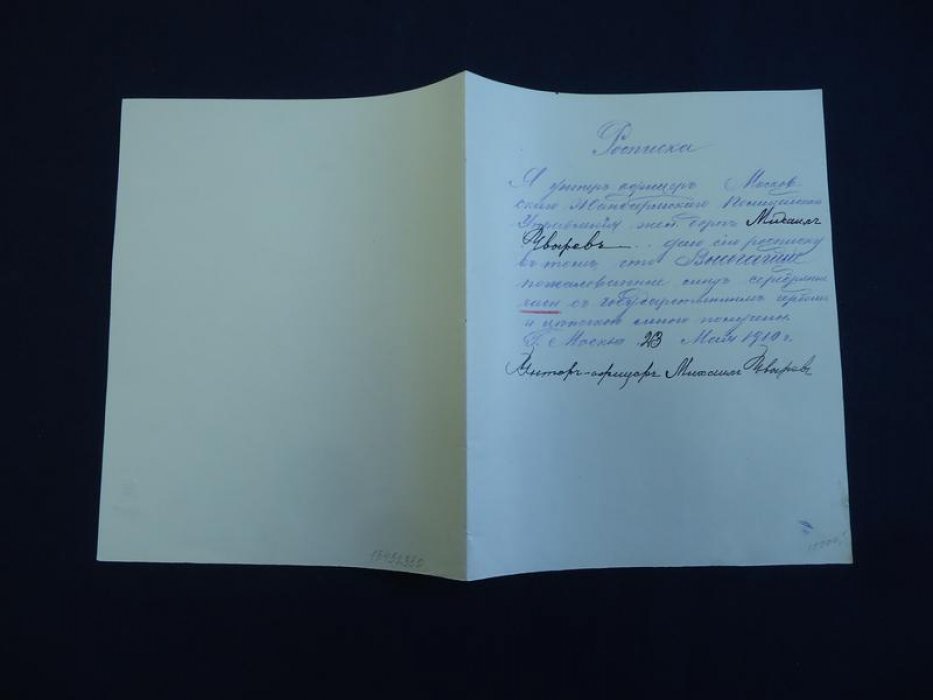 Росписка
Я унтеръ офицеръ Москов-
скаго Жандармскаго Полицейскаго
Управления жел. дорогъ Михаилъ
даю сію росписку
въ томъ, что Высочайше
пожалованные серебряные
часы съ Государственнымъ гербомъ
и цѣпочкой мною получены.
Г. Москва 23 Мая 1910 г.
Унтеръ-офицеръ Михаилъ